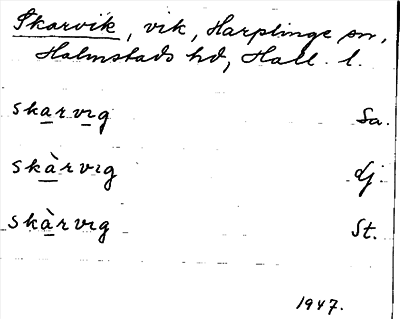 Skarvik, vik, Harplinge sn,
Halmstads hd, Hall. l.
skarvig Sa.
skàrvig dj.
skàrvig St.
1947.